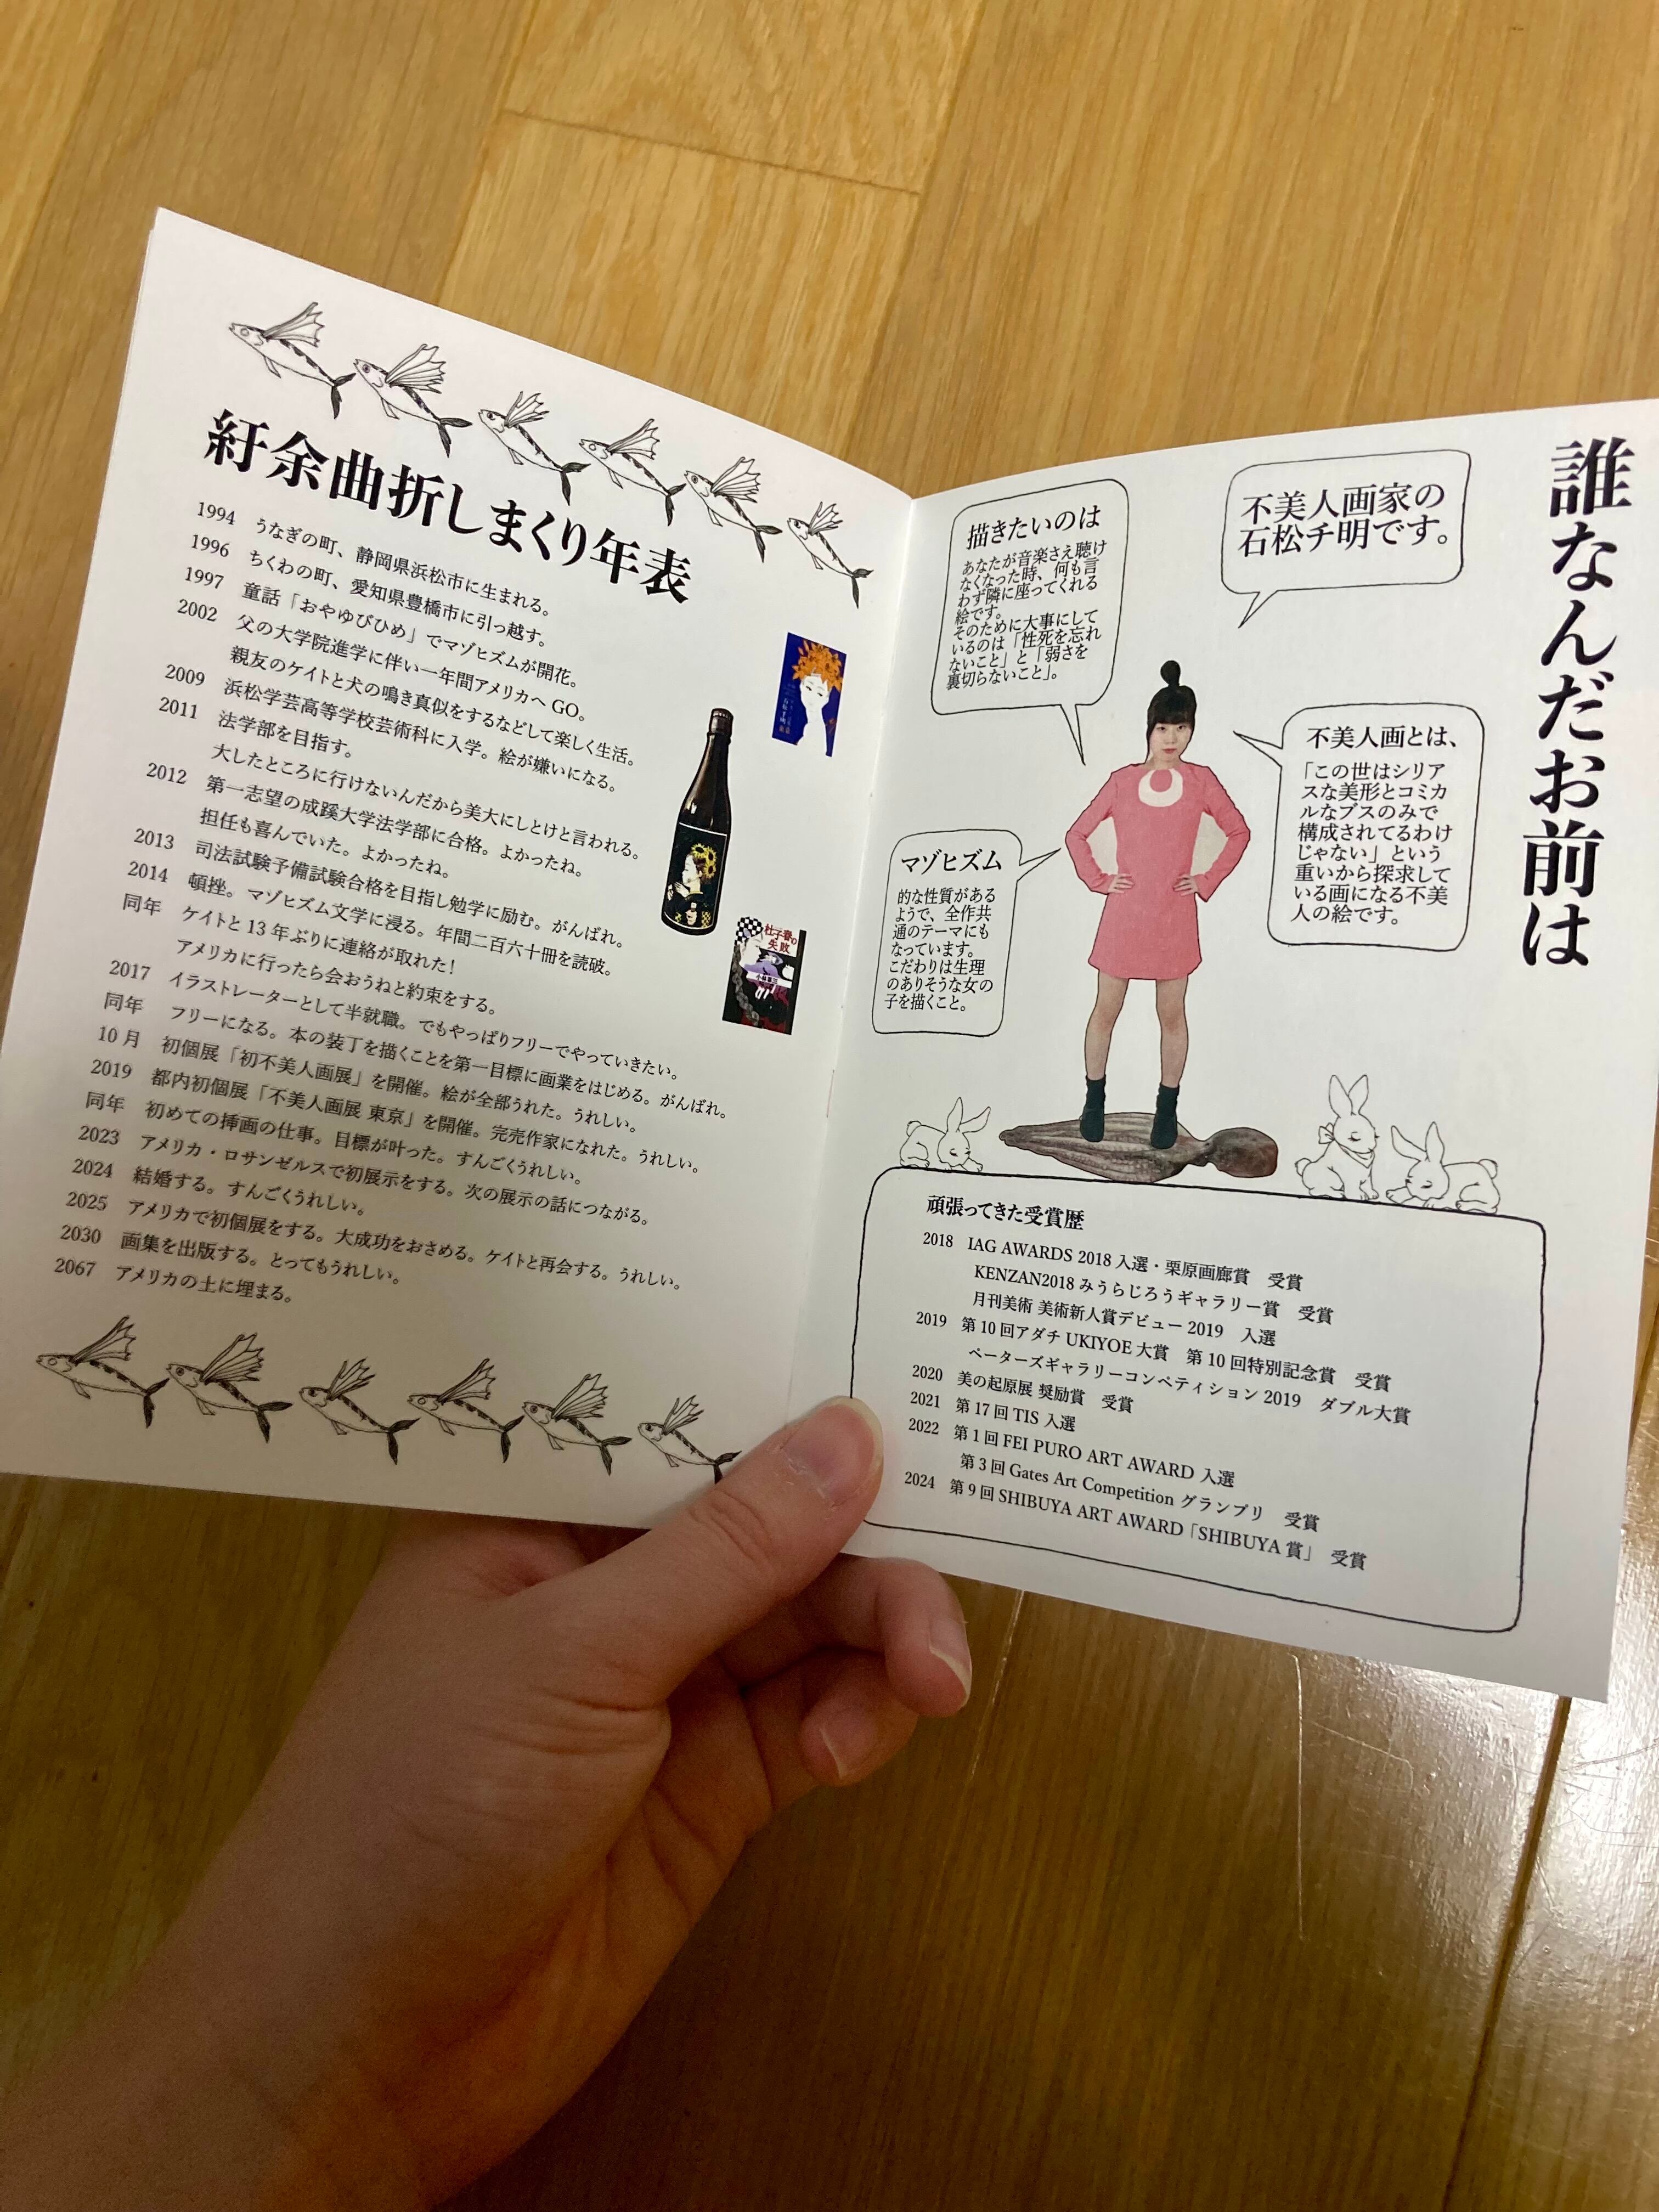 誰なんだお前は
不美人画家の
石松チ明です。
描きたいのは
あなたが音楽さえ聴け
なくなった時、何も言
わず隣に座ってくれる
絵です。
そのために大事にして
いるのは「性死を忘れ
ないこと」と「弱さを
裏切らないこと」。
不美人画とは、
「この世はシリア
スな美形とコミカ
ルなブスのみで
構成されてるわけ
じゃない」という
重いから探求して
いる画になる不美
人の絵です。
マゾヒズム
的な性質がある
ようで、全作共
通のテーマにも
なっています。
こだわりは生理
のありそうな女の
子を描くこと。
頑張ってきた受賞歴
2018 IAG AWARDS 2018 入選・栗原画廊賞 受賞
KENZAN2018 みうらじろうギャラリー賞 受賞
月刊美術 美術新人賞デビュー 2019 入選
2019 第 10 回アダチ UKIYOE 大賞 第 10 回特別記念賞 受賞
ペーターズギャラリーコンペティション 2019 ダブル大賞
2020 美の起原展 奨励賞 受賞
2021 第 17 回 TIS 入選
2022 第 1 回 FEI PURO ART AWARD 入選
第 3 回 Gates Art Competition グランプリ 受賞
2024 第 9 回 SHIBUYA ART AWARD「SHIBUYA 賞」 受賞
紆余曲折しまくり年表
1994 うなぎの町、静岡県浜松市に生まれる。
1996 ちくわの町、愛知県豊橋市に引っ越す。
1997 童話「おやゆびひめ」でマゾヒズムが開花。
2002 父の大学院進学に伴い一年間アメリカへ GO。
親友のケイトと犬の鳴き真似をするなどして楽しく生活。
2009 浜松学芸高等学校芸術科に入学。絵が嫌いになる。
2011 法学部を目指す。
大したところに行けないんだから美大にしとけと言われる。
2012 第一志望の成蹊大学法学部に合格。よかったね。
担任も喜んでいた。よかったね。
2013 司法試験予備試験合格を目指し勉学に励む。がんばれ。
2014 頓挫。マゾヒズム文学に浸る。年間二百六十冊を読破。
同年 ケイトと 13 年ぶりに連絡が取れた！
アメリカに行ったら会おうねと約束をする。
2017 イラストレーターとして半就職。でもやっぱりフリーでやっていきたい。
同年 フリーになる。本の装丁を描くことを第一目標に画業をはじめる。がんばれ。
10 月 初個展「初不美人画展」を開催。絵が全部うれた。うれしい。
2019 都内初個展「不美人画展 東京」を開催。完売作家になれた。うれしい。
同年 初めての挿画の仕事。目標が叶った。すんごくうれしい。
2023 アメリカ・ロサンゼルスで初展示をする。次の展示の話につながる。
2024 結婚する。すんごくうれしい。
2025 アメリカで初個展をする。大成功をおさめる。ケイトと再会する。うれしい。
2030 画集を出版する。とってもうれしい。
2067 アメリカの土に埋まる。
杜子春の
失敗